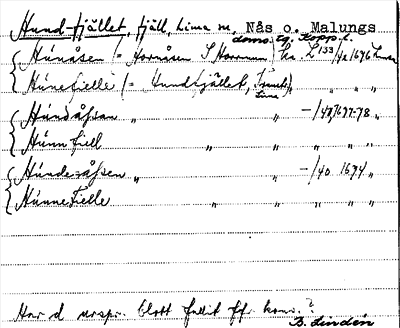 Hund-fjället, fjäll, Lima sn, Nås o. Malungs
doms. tg. Kopp. l.
{ Húnåsen (= Hornåsen S Horrmun) Ka L 133/42 1696 Lima
{ Húnefielle (= Hundfjället, Transtr. Lima) „ „ „
{ Húndåßen „ „ —/42, 1677-78 „
{ Húnn fiell „ „ „ „
{ Húnderåßen „ „ —/40 1674 „
{ Húnnefielle „ „ „ „
Har d urspr. blott fallit ff. kons.?
B. Lindén